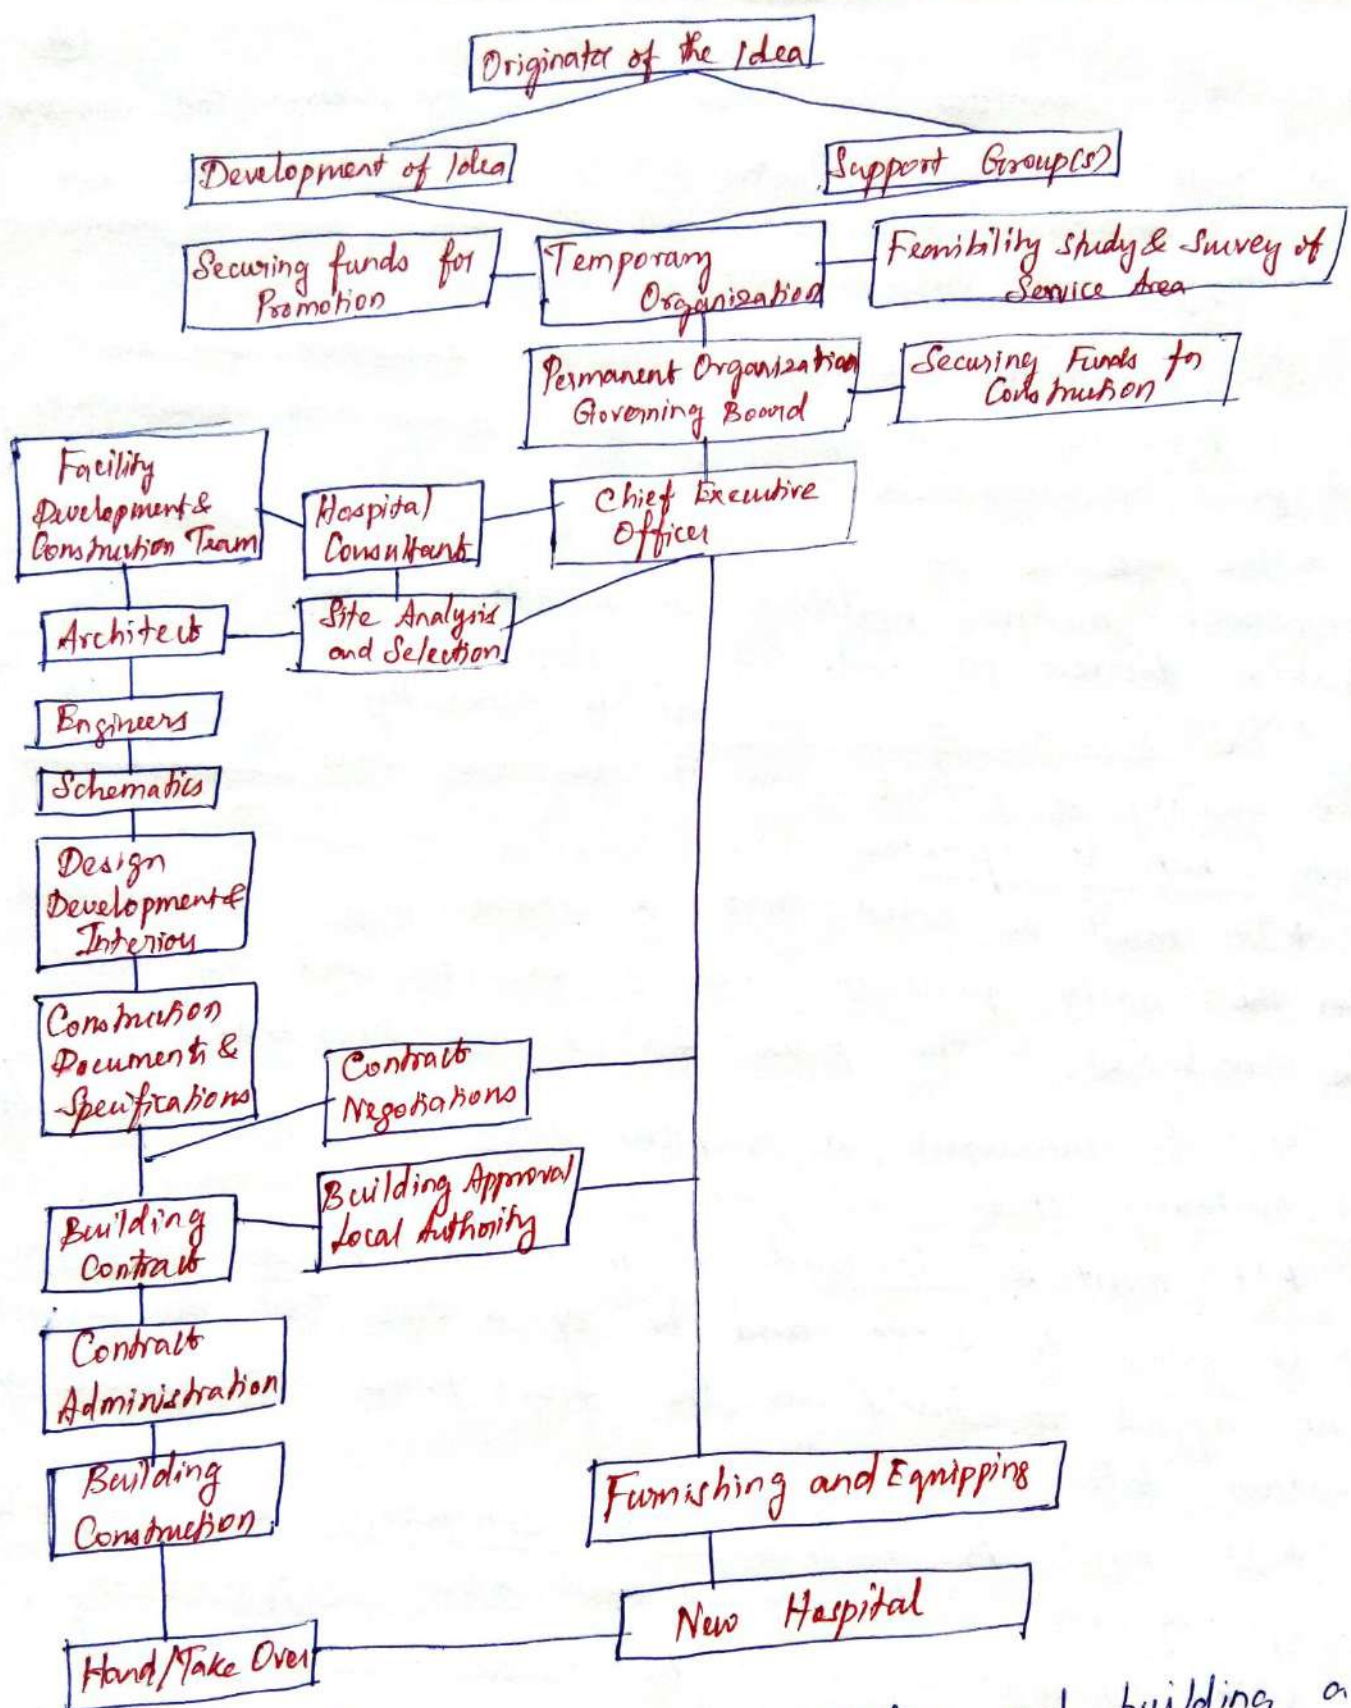 Originator of the Idea
Development of Idea
Support Group(s)
Securing funds for
Promotion
Temporary
Organization
Feasibility Study & Survey of
Service Area
Permanent Organization
Governing Board
Securing Funds for
Construction
Facility
Development &
Construction Team
Hospital
Consultant
Chief Executive
Officer
Architect
Site Analysis
and Selection
Engineers
Schematics
Design
Development &
Interiors
Construction
Documents &
Specifications
Contract
Negotiations
Building Approval
Local Authority
Building
Contract
Contract
Administration
Building
Construction
Furnishing and Equipping
New Hospital
Hand/Take Over
building a